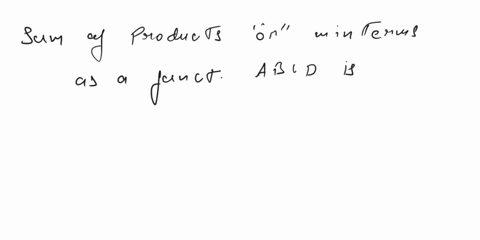 Sum of Products "or" minterms
as a funct. ABCD is